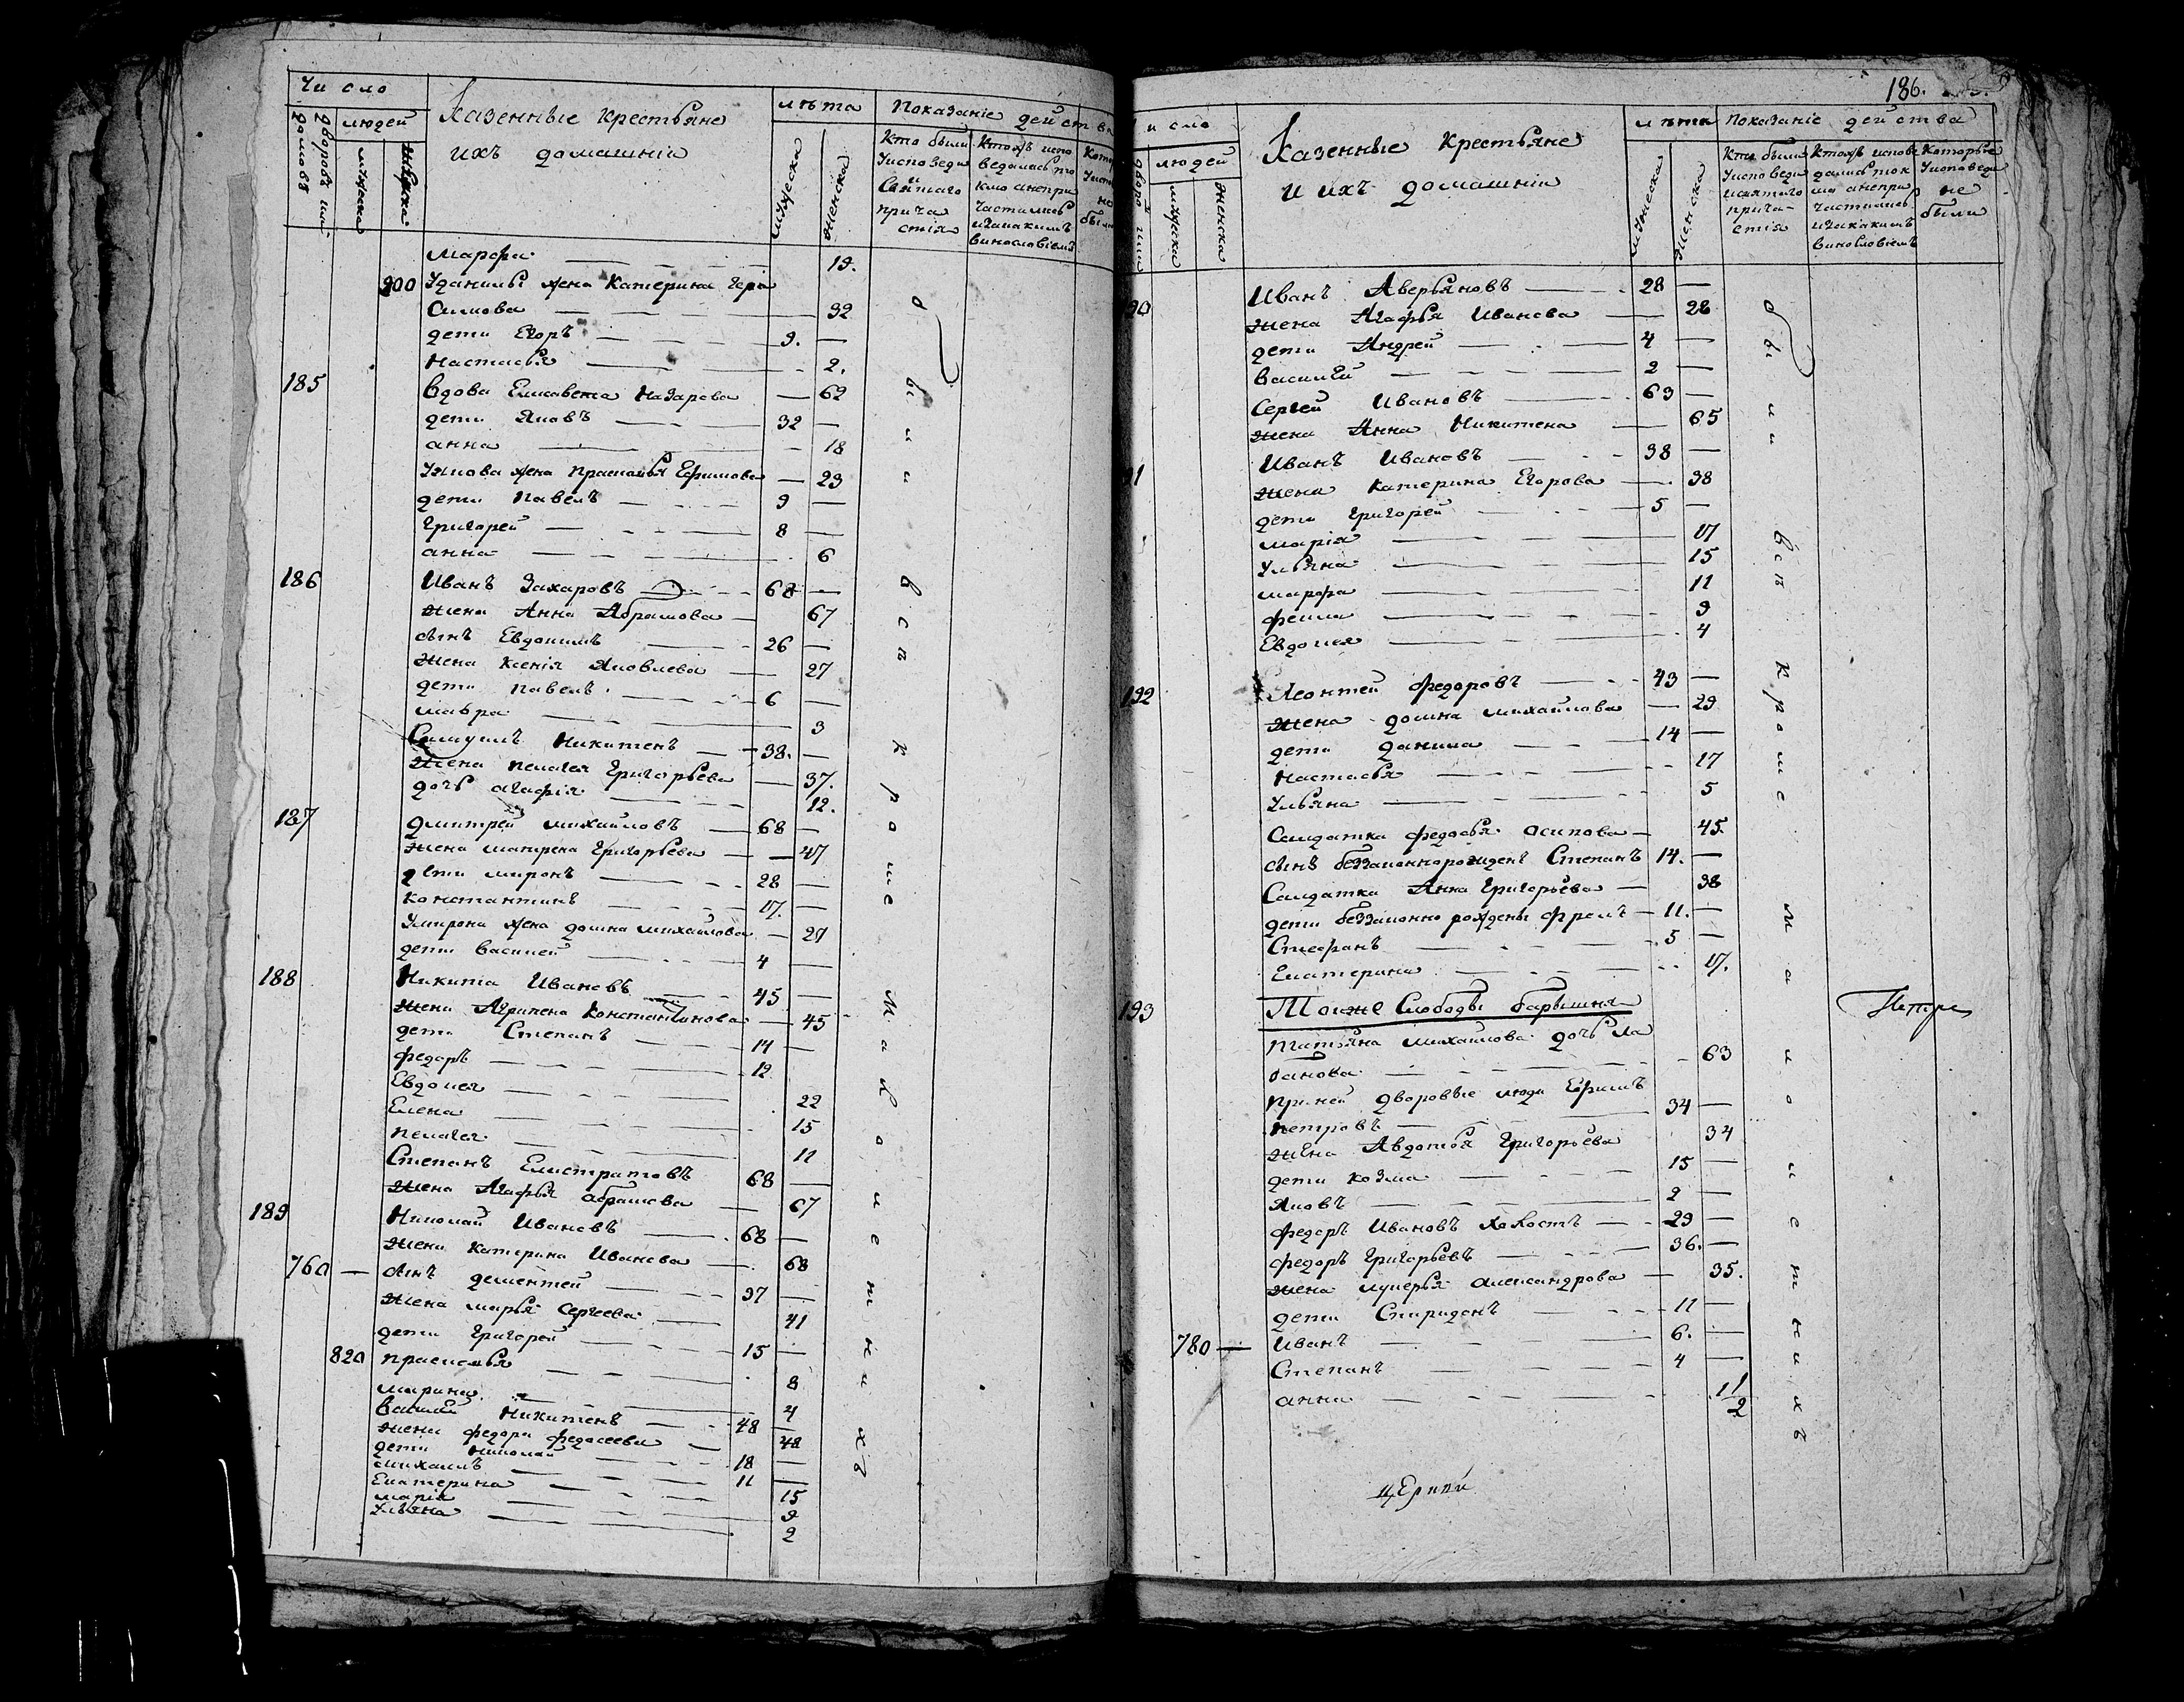 Число
людей
дворовъ или домовъ
мужеска
женска
Казенные крестьяне
ихъ домашніи
лѣта
мужеска
женска
Показаніе действа
Кто были Уисповеди и Святаго причастія
марфа 19.
900 Уданилы жена Катерина Гера
симова 32
дети Егоръ 9.
Настасья 2.
185 вдова Елисавета Назарова 62
дети Яковъ 32
анна 18
Уякова жена Прасковья Ефимова 29
дети павелъ 9
Григорей 8
анна 6
186 Иванъ Захаровъ 68
жена Анна Абрамова 67
сынъ Евдокимъ 26
жена ксенія Яковлева 27
дети павелъ 6
мавра 3
Самуилъ Никитенъ 38.
жена пелагея Григорьева 37.
дочь агафія 12.
187 Дмитрей михаиловъ 68
жена матрена Григорьева 47
дети миронъ 28
константинъ 17.
Умирона жена домна михаилова 27
дети василей 4
188 Никита Ивановъ 45
жена Агрипена Константинова 45
дети Степанъ 14
федоръ 12
Евдокея 22
Елена 15
пелагея 11
Степанъ Елистратовъ 68
жена Агафья абрамова 67
189 Николай Ивановъ 68
жена катерина Иванова 68
760 сынъ дементей 37
жена марья Сергеева 41
дети Григорей 15
820 прасковья 8
марина 4
василий Никитенъ 48
жена федора федосеева 48
дети николай 18
михаилъ 11
Екатерина 15
марія 9
Ульяна 2
были вси кроме малолетнихъ
186.
число
людей
мужеска
женска
Казенные крестьяне
и ихъ домашніи
лѣта
мужеска
женска
Показаніе действа
Кто были Уисповеди исвятаго причастія
Которые Уисповеди не были
90
Иванъ Аверьяновъ 28
жена Агафья Иванова 28
дети Андрей 4
василей 2
Сергей Ивановъ 63
жена Анна Никитена 65
91 Иванъ Ивановъ 38
жена катерина Егорова 38
дети Григорей 5
марія 17
Ульяна 15
марфа 11
фекла 9
Евдокея 4
192 Леонтей федоровъ 43
жена домна михаилова 29
дети данила 14
настасья 17
Ульяна 5
Салдатка федосья осипова 45.
сынъ беззаконнорожденъ Степанъ 14.
Салдатка Анна Григорьева 38
дети беззаконно рождены фролъ 11.
Стефанъ 5
Екатерина 17.
193 Тоиже Слободы барышня
татьяна михаилова дочь Ла
банова 63
При ней дворовые люди Ефимъ
петровъ 34
жена Авдотья Григорьева 34
дети козма 15
Яковъ 2
федоръ Ивановъ холостъ 29
федоръ Григорьевъ 36.
жена лукерья александрова 35.
дети Спиридонъ 11
780 Иванъ 6.
Степанъ 4
анна 1 1/2
были вси кроме малолетнихъ